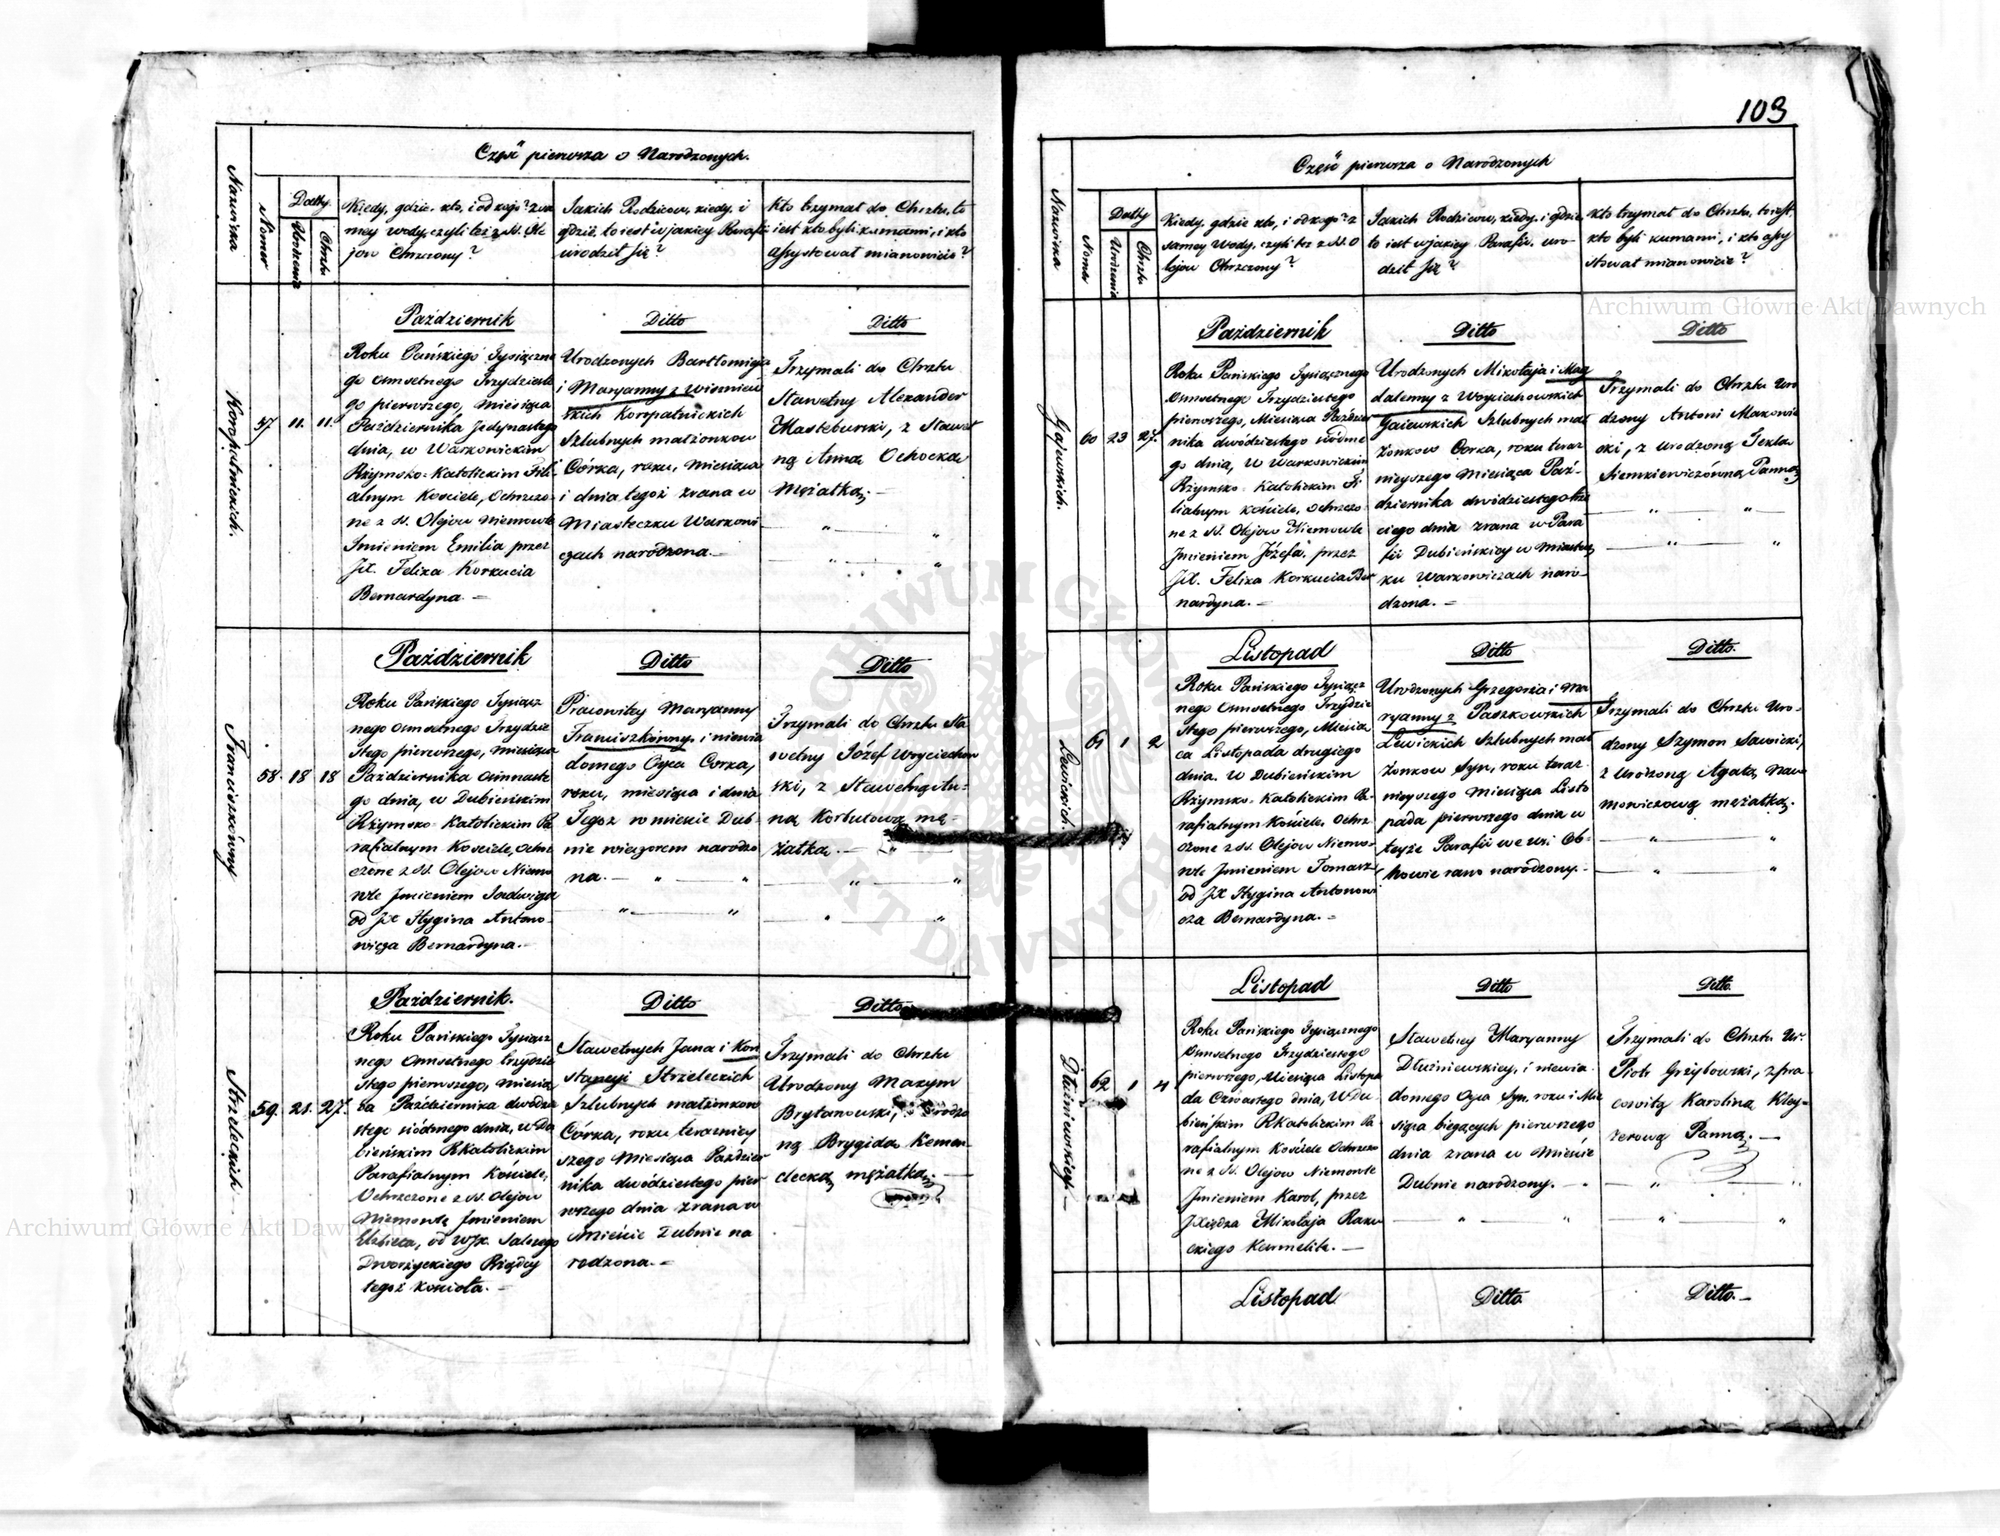 103
Część pierwsza o Narodzonych.
Nazwiska
Nomer
Datty.
Urodzenia
Chrztu
Kiedy, gdzie, kto, i od kogo? z sa
mey wody, czyli też z SS. Ole
jow Chrzczony?
Jakich Rodzicow, kiedy, i
gdzie to iest w jakiey Parafii
urodził się?
Kto trzymał do Chrztu, to
iest kto byli kumami, i kto
assystował mianowicie?
Koropatnickich.
57
11.
11.
Październik
Roku Pańskiego Tysiączne
go osmsetnego Trzydzieste
go pierwszego, miesiąca
Października jedynastego
dnia, w Warkowickim
Rzymsko-Katolickim Fili
alnym Kosciele, Ochrzczo-
ne z SS. Olejow Niemowle
Imieniem Emilia przez
JX. Felixa Korkucia
Bernardyna. =
Ditto
Urodzonych Bartłomieja
i Maryanny z Wisniew
skich Koropatnickich
Szlubnych małżonkow
Córka, roku, miesiąca
i dnia tegoż zrana w
Miasteczku Warkowi
czach narodzona. —
Ditto
Trzymali do Chrztu
Sławetny Alexander
Masteburski, z Sławet
ną Anna Ochocka
Mężatką. —
— " —
— " — "
Franciszkówny
58.
18
18
Październik
Roku Pańskiego Tysiącz
nego osmsetnego Trzydzie
stego pierwszego, miesiąca
Października osmnaste
go dnia, w Dubieńskim
Rzymsko-Katolickim Pa
rafialnym Kosciele, Ochrz
czone z SS. Olejow Niemo
wle Imieniem Jadwiga
od JX Hygina Antono-
wicza Bernardyna. —
Ditto
Pracowitey Maryanny
Franciszkówny i niewia
domego Oyca Corka,
roku, miesiąca i dnia
Tegoż w miescie Dub-
nie wieczorem narodzo
na. — " — "
" — "
Ditto
Trzymali do Chrztu Sła
wetny Józef Woyciechow
ski, z Sławetną An-
ną Korbutową mę-
żatką. — "
— " — "
" — "
Strzeleckich
59.
21.
27.
Październik.
Roku Pańskiego Tysiącz
nego Osmsetnego trzydzie
stego pierwszego, miesią
ca Października dwodzie
stego siódmego dnia, w Du
bieńskim RKatolickim
Parafialnym Kościele,
Ochrzczone z SS. Olejow
Niemowlę Imieniem
Elżbieta, od WJX. Salezego
Dworzyckiego Rządcy
tegoż kościoła. —
Ditto
Sławetnych Jana i Kon
stancyi Strzeleckich
Szlubnych małżonkow
Córka, roku teraźniey
szego Miesiąca Paździer
nika dwódziestego pier
wszego dnia zrana w
Mieście Dubnie na
rodzona. =
Ditto
Trzymali do Chrztu
Urodzony Maxym
Brytanowski, z Urodzo
ną Brygidą Kemen
decką mężatką. —
Część pierwsza o Narodzonych
Nazwiska
Nomer
Datty
Urodzenia
Chrztu
Kiedy, gdzie kto, i od kogo? z
samey wody, czyli też z SS. O
lejow Chrzczony?
Jakich Rodzicow, kiedy, i gdzie
to iest w jakiey Parafii uro-
dził się?
Kto trzymał do Chrztu, to iest,
kto byli kumami, i kto assy
stował mianowicie?
Gajewskich.
60
23
27.
Październik
Roku Pańskiego Tysiącznego
Osmsetnego Trzydziestego
pierwszego, Miesiąca Paździer
nika dwódziestego siódme
go dnia, w Warkowickim
Rzymsko-Katolickim Fi
lialnym kościele, ochrzczo
ne z SS. Olejow Niemowle
Imieniem Józefa, przez
JX. Felixa Korkucia Ber
nardyna. =
Ditto
Urodzonych Mikołaja i Mag
dalenny z Woyciechowskich
Gaiewskich Szlubnych mał
żonkow Corka, roku teraz
nieyszego Miesiąca Paź-
dziernika dwódziestego trze
ciego dnia zrana w Para
fii Dubieńskiey w Miastecz
ku Warkowiczach naro-
dzona. =
Ditto
Trzymali do Chrztu Uro
dzony Antoni Makowie
cki, z Urodzoną Teklą
Siemkiewiczówną Panną.
" — "
— " — "
Lewickich.
61
1
2
Listopad
Roku Pańskiego Tysiącz
nego Osmsetnego Trzydzie
stego pierwszego, Miesią
ca Listopada drugiego
dnia, w Dubieńskim
Rzymsko-Katolickim Pa-
rafialnym Kościele, Ochrz
czone z SS. Olejow Niemo-
wle Imieniem Tomasz,
od JX Hygina Antonowi
cza Bernardyna. =
Ditto
Urodzonych Grzegorza i Ma
ryanny z Paszkowskich
Lewickich Szlubnych mał
żonkow Syn, roku teraz
nieyszego Miesiąca Listo
pada pierwszego dnia w
teyże Parafii we wsi Ob-
howie rano narodzony. —
Ditto.
Trzymali do Chrztu Uro-
dzony Szymon Sawicki,
z Urodzoną Agatą Nau
mowiczową mężatką.
" — "
" — "
Dłużniewskiey.
62
1
4
Listopad
Roku Pańskiego Tysiącznego
Osmsetnego Trzydziestego
pierwszego, Miesiąca Listopa
da Czwartego dnia, w Du-
bieńskim RKatolickim Pa
rafialnym Kościele Ochrzczo
ne z SS. Olejow Niemowle
Imieniem Karol, przez
JXiędza Mikołaja Raku
ckiego Karmelitę. —
Ditto
Sławetney Maryanny
Dłużniewskiey, i niewia
domego Oyca Syn, roku i Mie
siąca bieżących pierwszego
dnia zrana w Mieście
Dubnie narodzony. —
— " — "
Ditto.
Trzymali do Chrztu Ur.
Piotr Grzybowski, z pra
cowitą Karoliną Kley-
nerową Panną. —
— " — "
— " — "
Listopad
Ditto.
Ditto. —
Archiwum Główne Akt Dawnych
Archiwum Główne Akt Dawnych
ARCHIWUM GŁÓWNE AKT DAWNYCH